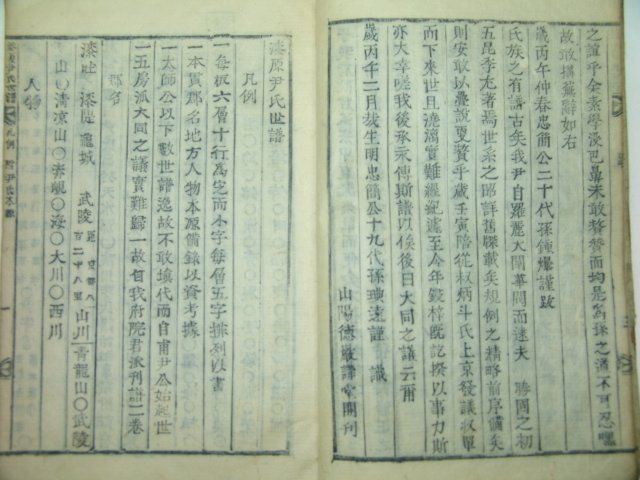 之誼乎余素學淺巴鼻未敢贅贊而均是爲孫之道不可忍嘿
故敢搆蕪辭如右
歲丙午仲春忠簡公二十代孫鍾燦謹跋
氏族之有譜古矣我尹自羅麗大闡華閥而逮夫 勝國之初
五昆季尤著焉世系之郎詳舊牒載矣規例之精略前序備矣
則安敢以疊說更贅乎歲壬寅陪從叔炳斗氏上京發議收單
而下來世且澆漓實難經紀遲至今年鋟梓旣訖揆以事力斯
亦大幸哉我後承永傳斯譜以俟後日大同之議云爾
歲丙午二月哉生明忠簡公十九代孫 謹 識
山陽德巖譜堂開刊
漆原尹氏世譜
凡例
一每板六層十行爲定而小字每層五字排列以書
一本貫郡名地方人物本源備錄以資考據
一太師公以下數世譜逸故不敢塡代而自甫尹公始繼世
一五房派大同之議實難歸一故自我府院君派刊譜二卷
郡名
漆吐 漆隄 龜城 武陵 距京都八百二十八里 山川 靑龍山〇武陵
山〇淸凉山〇赤峴〇海〇大川〇西川
人物